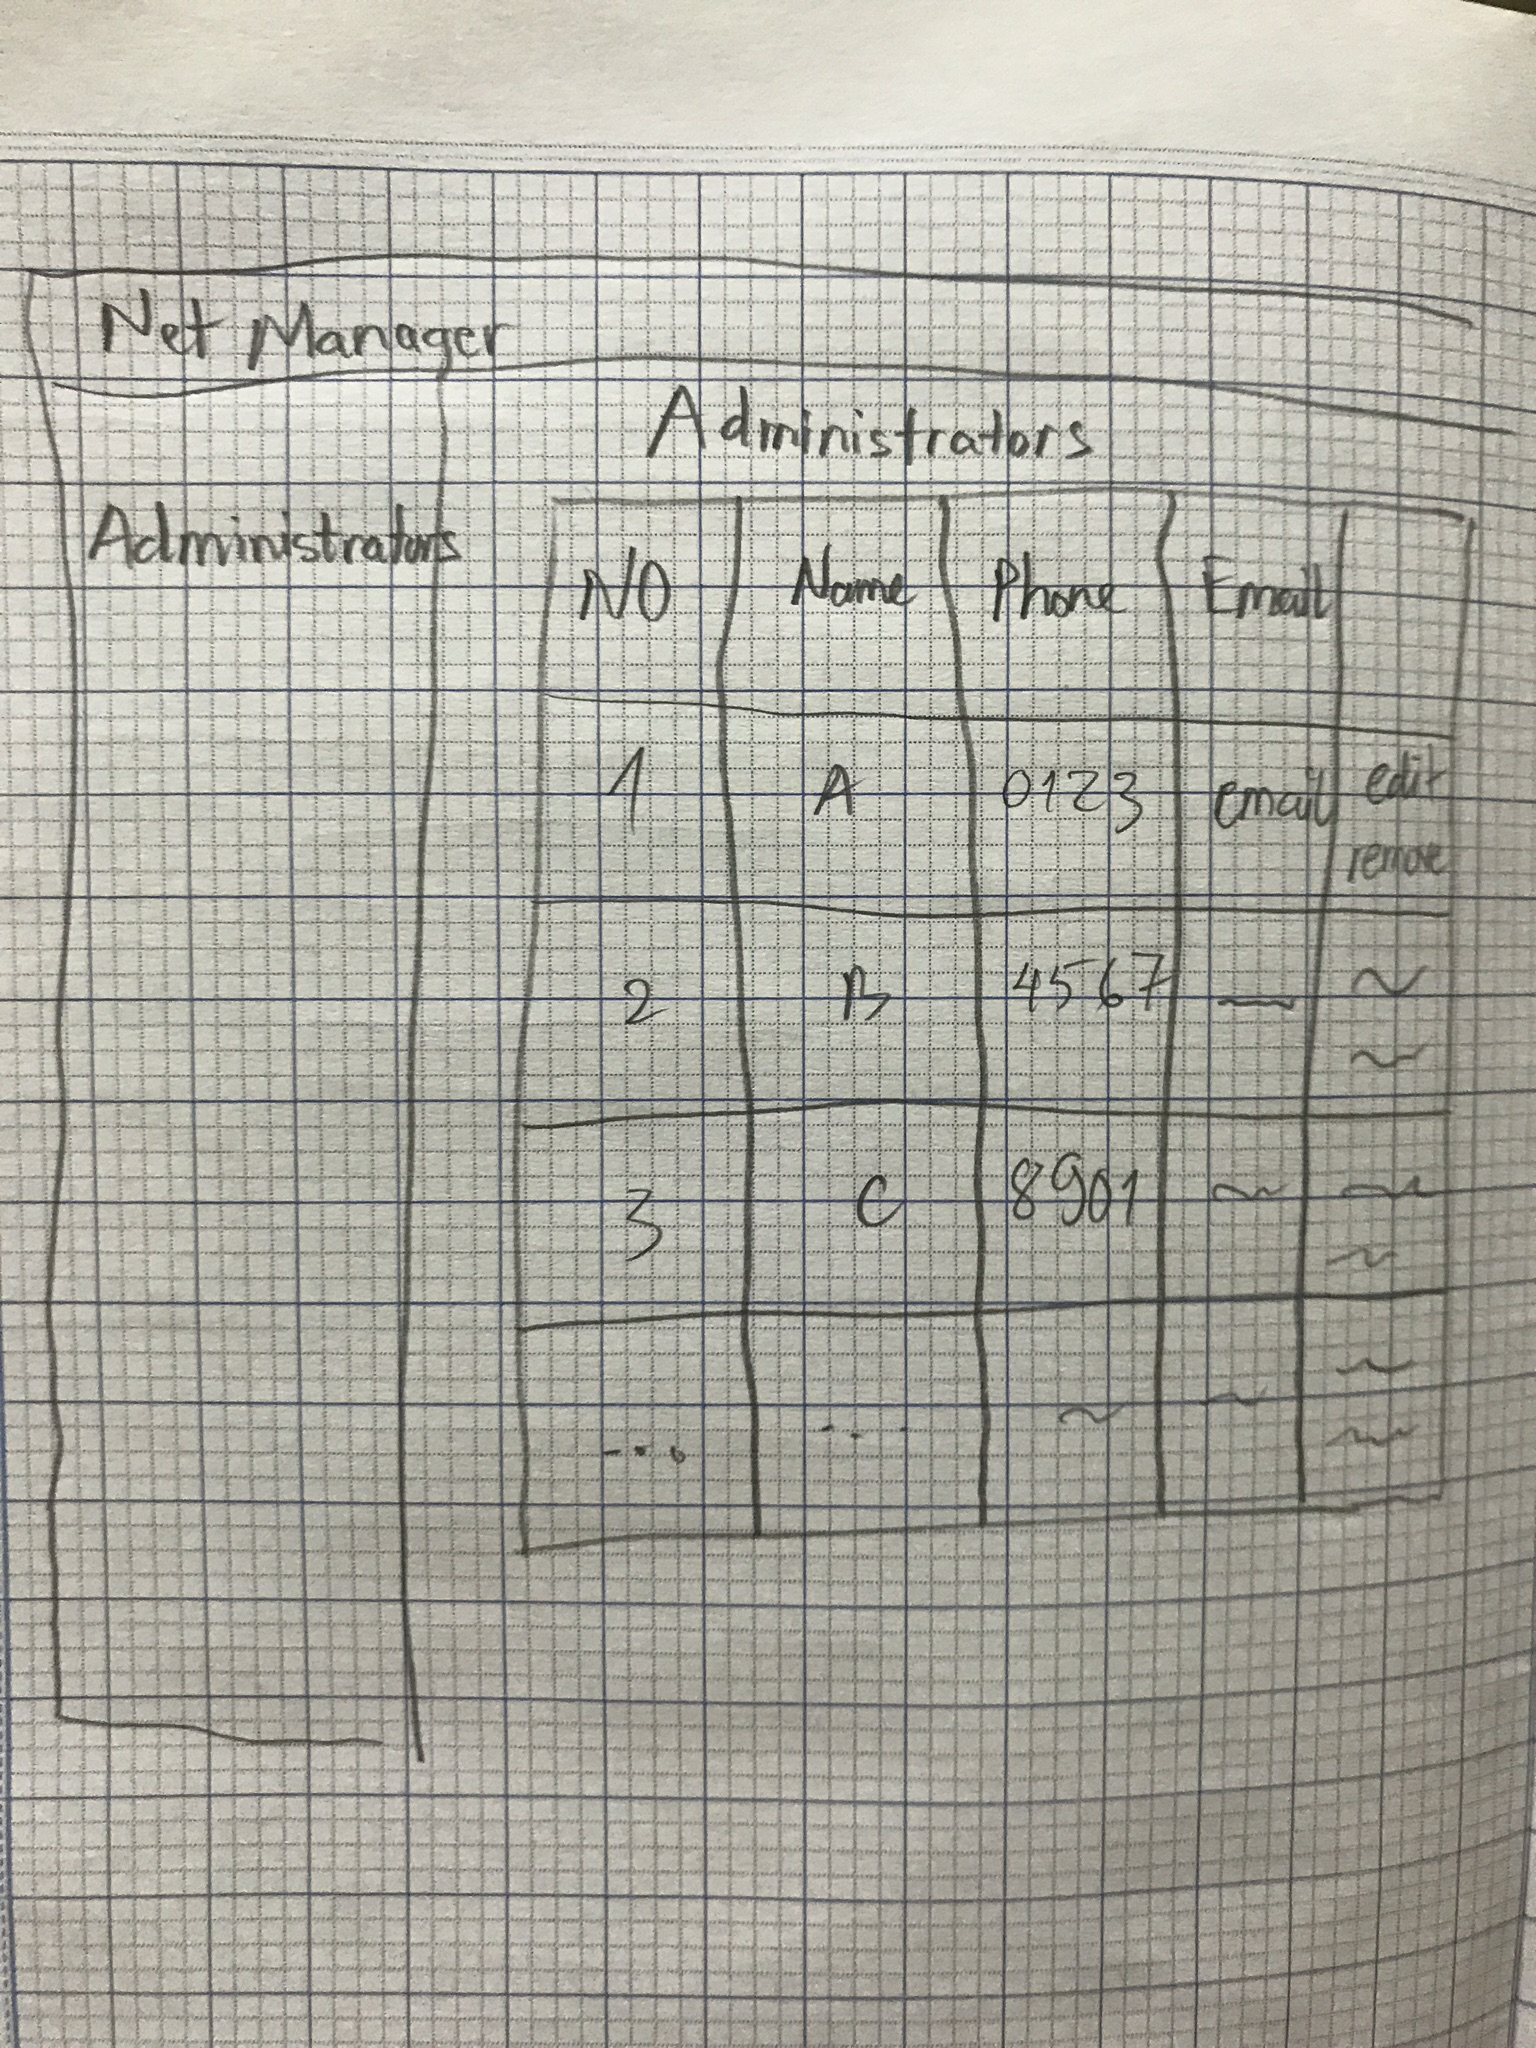 Net Manager
Administrators
Administrators
NO Name Phone Email
1 A 0123 email edit
remove
2 B 4567
3 C 8901
... ...